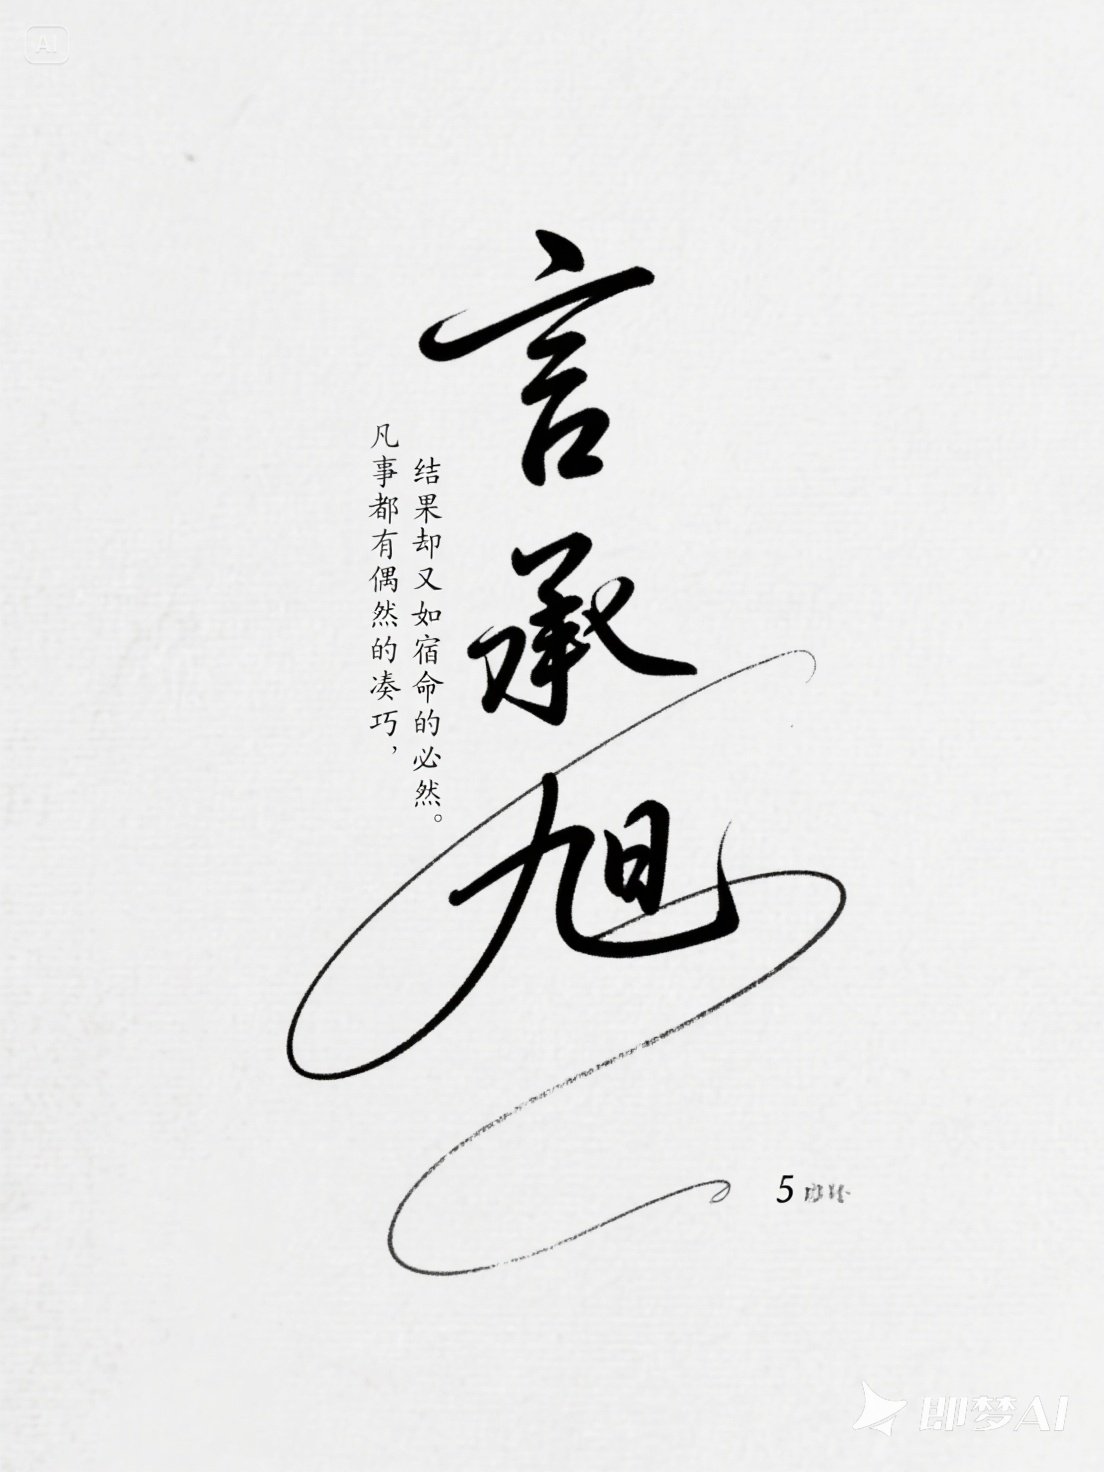 言承旭
凡事都有偶然的凑巧，
结果却又如宿命的必然。
5
AI
即梦AI